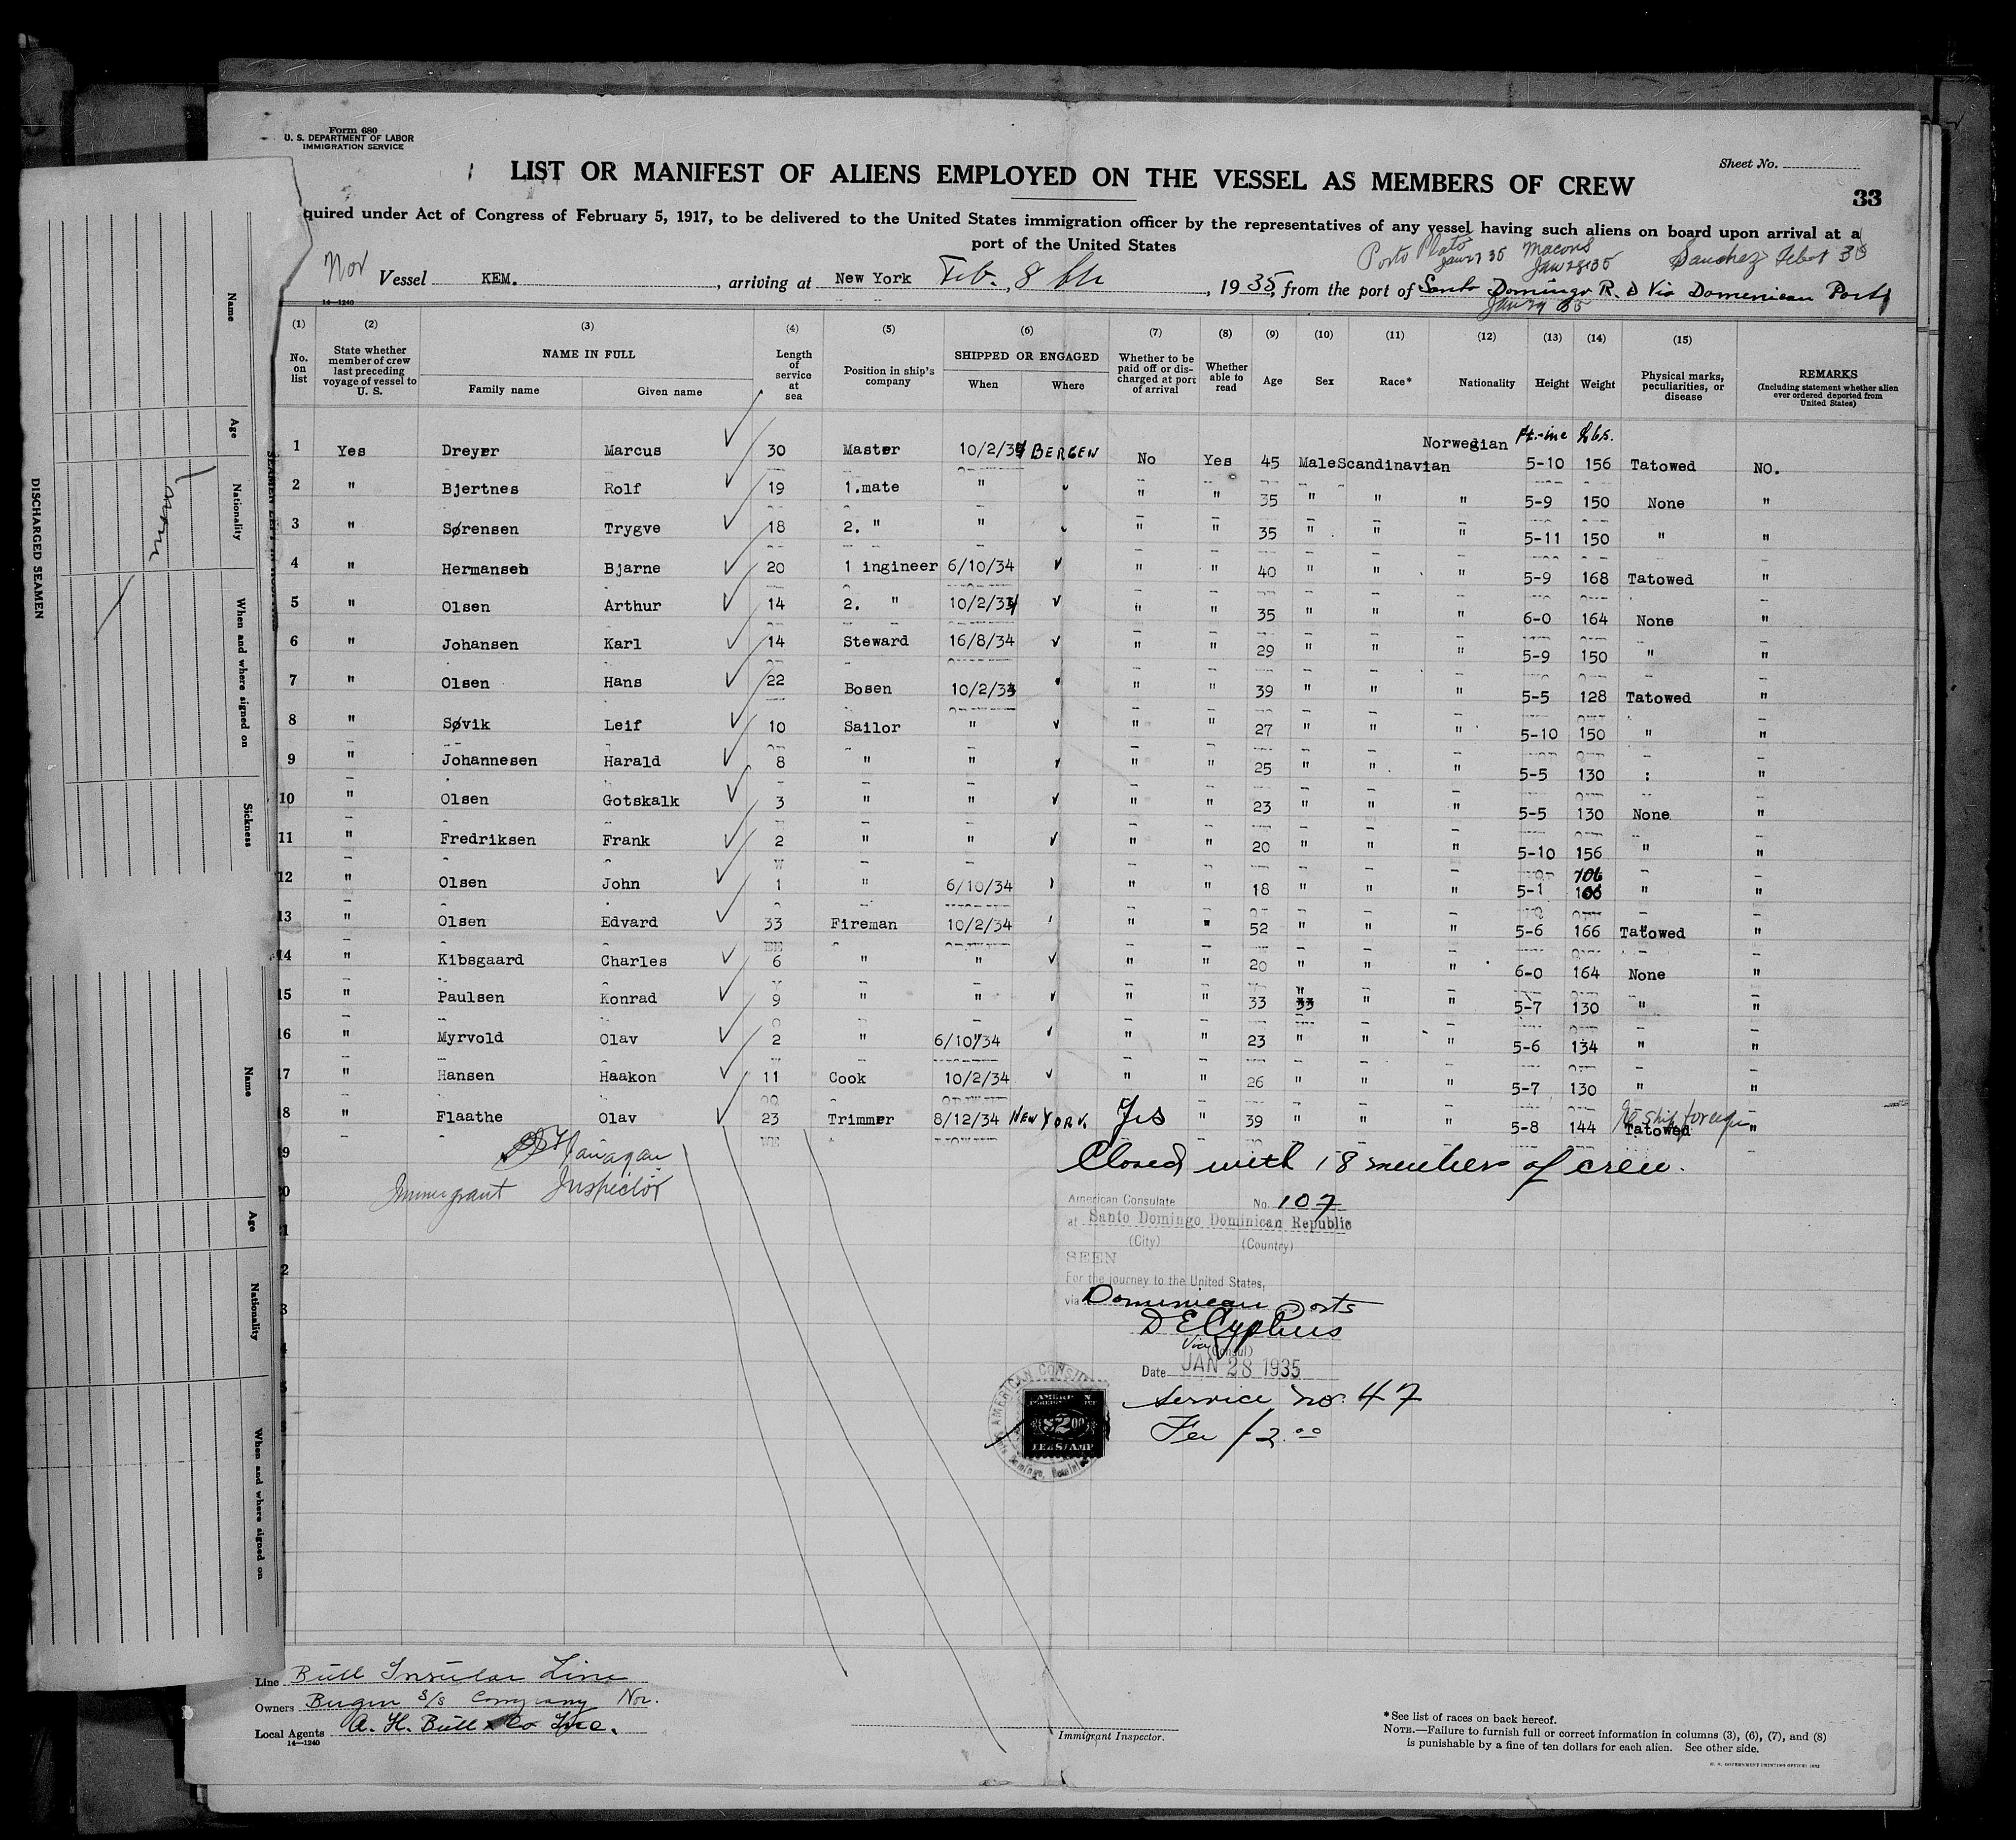 Form 680
U. S. DEPARTMENT OF LABOR
IMMIGRATION SERVICE
Sheet No.
LIST OR MANIFEST OF ALIENS EMPLOYED ON THE VESSEL AS MEMBERS OF CREW
33
quired under Act of Congress of February 5, 1917, to be delivered to the United States immigration officer by the representatives of any vessel having such aliens on board upon arrival at a
port of the United States
Porto Plato Macoris Sanchez Feb 1 35
Jan 27 35 Jan 28 35
Nor Vessel KEM. , arriving at New York Feb. 8 th , 1935, from the port of Santo Domingo R. D Via Domenican Ports
Jan 29 35
14—1240
(1) (2) (3) (4) (5) (6) (7) (8) (9) (10) (11) (12) (13) (14) (15)
No. on list State whether member of crew last preceding voyage of vessel to U. S. NAME IN FULL Family name Given name Length of service at sea Position in ship's company SHIPPED OR ENGAGED When Where Whether to be paid off or discharged at port of arrival Whether able to read Age Sex Race* Nationality Height Weight Physical marks, peculiarities, or disease REMARKS (Including statement whether alien ever ordered deported from United States)
Ft.-ine Lbs.
1 Yes Dreyer Marcus 30 Master 10/2/34 BERGEN No Yes 45 Male Scandinavian Norwegian 5-10 156 Tatowed NO.
2 " Bjertnes Rolf 19 1.mate " " " " 35 " " " 5-9 150 None "
3 " Sørensen Trygve 18 2. " " " " " 35 " " " 5-11 150 " "
4 " Hermansen Bjarne 20 1 ingineer 6/10/34 " " 40 " " " 5-9 168 Tatowed "
5 " Olsen Arthur 14 2. " 10/2/34 " " 35 " " " 6-0 164 None "
6 " Johansen Karl 14 Steward 16/8/34 " " 29 " " " 5-9 150 " "
7 " Olsen Hans 22 Bosen 10/2/33 " " 39 " " " 5-5 128 Tatowed "
8 " Søvik Leif 10 Sailor " " " 27 " " " 5-10 150 " "
9 " Johannesen Harald 8 " " " " 25 " " " 5-5 130 : "
10 " Olsen Gotskalk 3 " " " " 23 " " " 5-5 130 None "
11 " Fredriksen Frank 2 " " " " 20 " " " 5-10 156 " "
12 " Olsen John 1 " 6/10/34 " " 18 " " " 5-1 106 " "
13 " Olsen Edvard 33 Fireman 10/2/34 " " 52 " " " 5-6 166 Tatowed "
14 " Kibsgaard Charles 6 " " " " 20 " " " 6-0 164 None "
15 " Paulsen Konrad 9 " " " " 33 " " " 5-7 130 " "
16 " Myrvold Olav 2 " 6/10/34 " " 23 " " " 5-6 134 " "
17 " Hansen Haakon 11 Cook 10/2/34 " " 26 " " " 5-7 130 " "
8 " Flaathe Olav 23 Trimmer 8/12/34 NEW YORK. Yes " 39 " " " 5-8 144 Tatowed "
Re ship foreign
Closed with 18 members of crew.
Immigrant Inspector
American Consulate No. 107
at Santo Domingo Dominican Republic
(City) (Country)
SEEN
For the journey to the United States,
via Dominican Ports
Vice (Consul)
Date JAN 28 1935
Service no. 47
Fee $2.00
AMERICAN CONSULATE
AMERICAN
$2.00
FEE STAMP
Line Bull Insular Line
Owners Bergen S/S Company Nor.
Local Agents A. H. Bull & Co Inc.
14—1240
Immigrant Inspector.
*See list of races on back hereof.
NOTE.—Failure to furnish full or correct information in columns (3), (6), (7), and (8)
is punishable by a fine of ten dollars for each alien. See other side.
DISCHARGED SEAMEN
Name
Age
Nationality
When and where signed on
Sickness
Name
Age
Nationality
When and where signed on